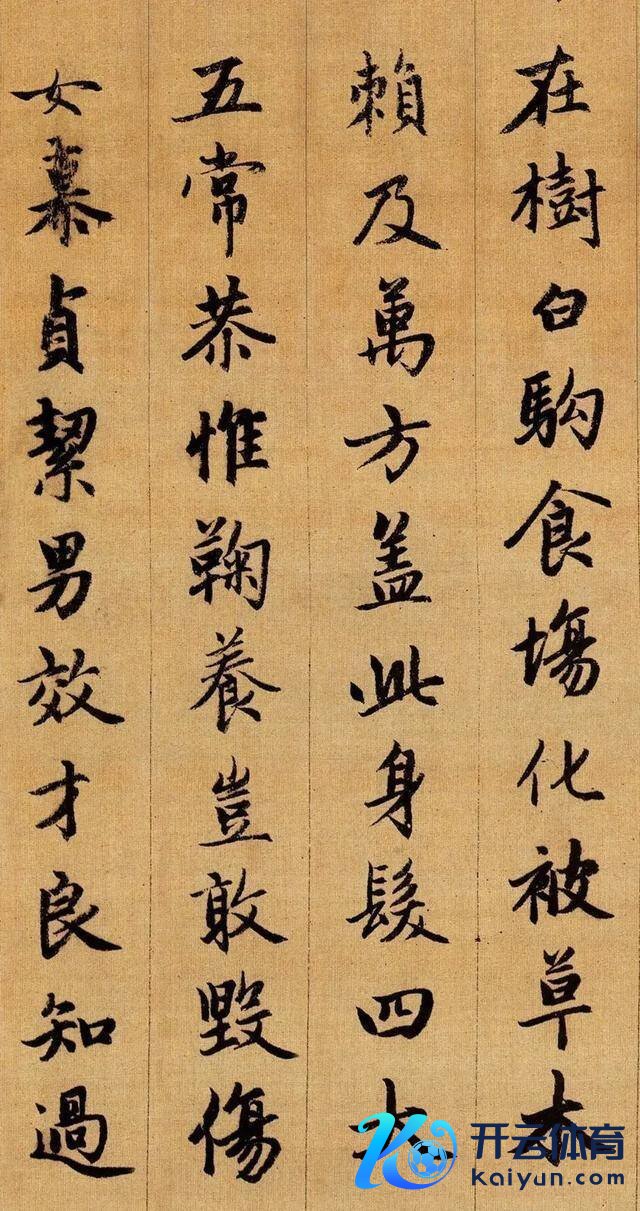 在樹白駒食塲化被草木
賴及萬方盖此身髮四大
五常恭惟鞠養豈敢毀傷
女慕貞絜男效才良知過
开云体育
kaiyun.com